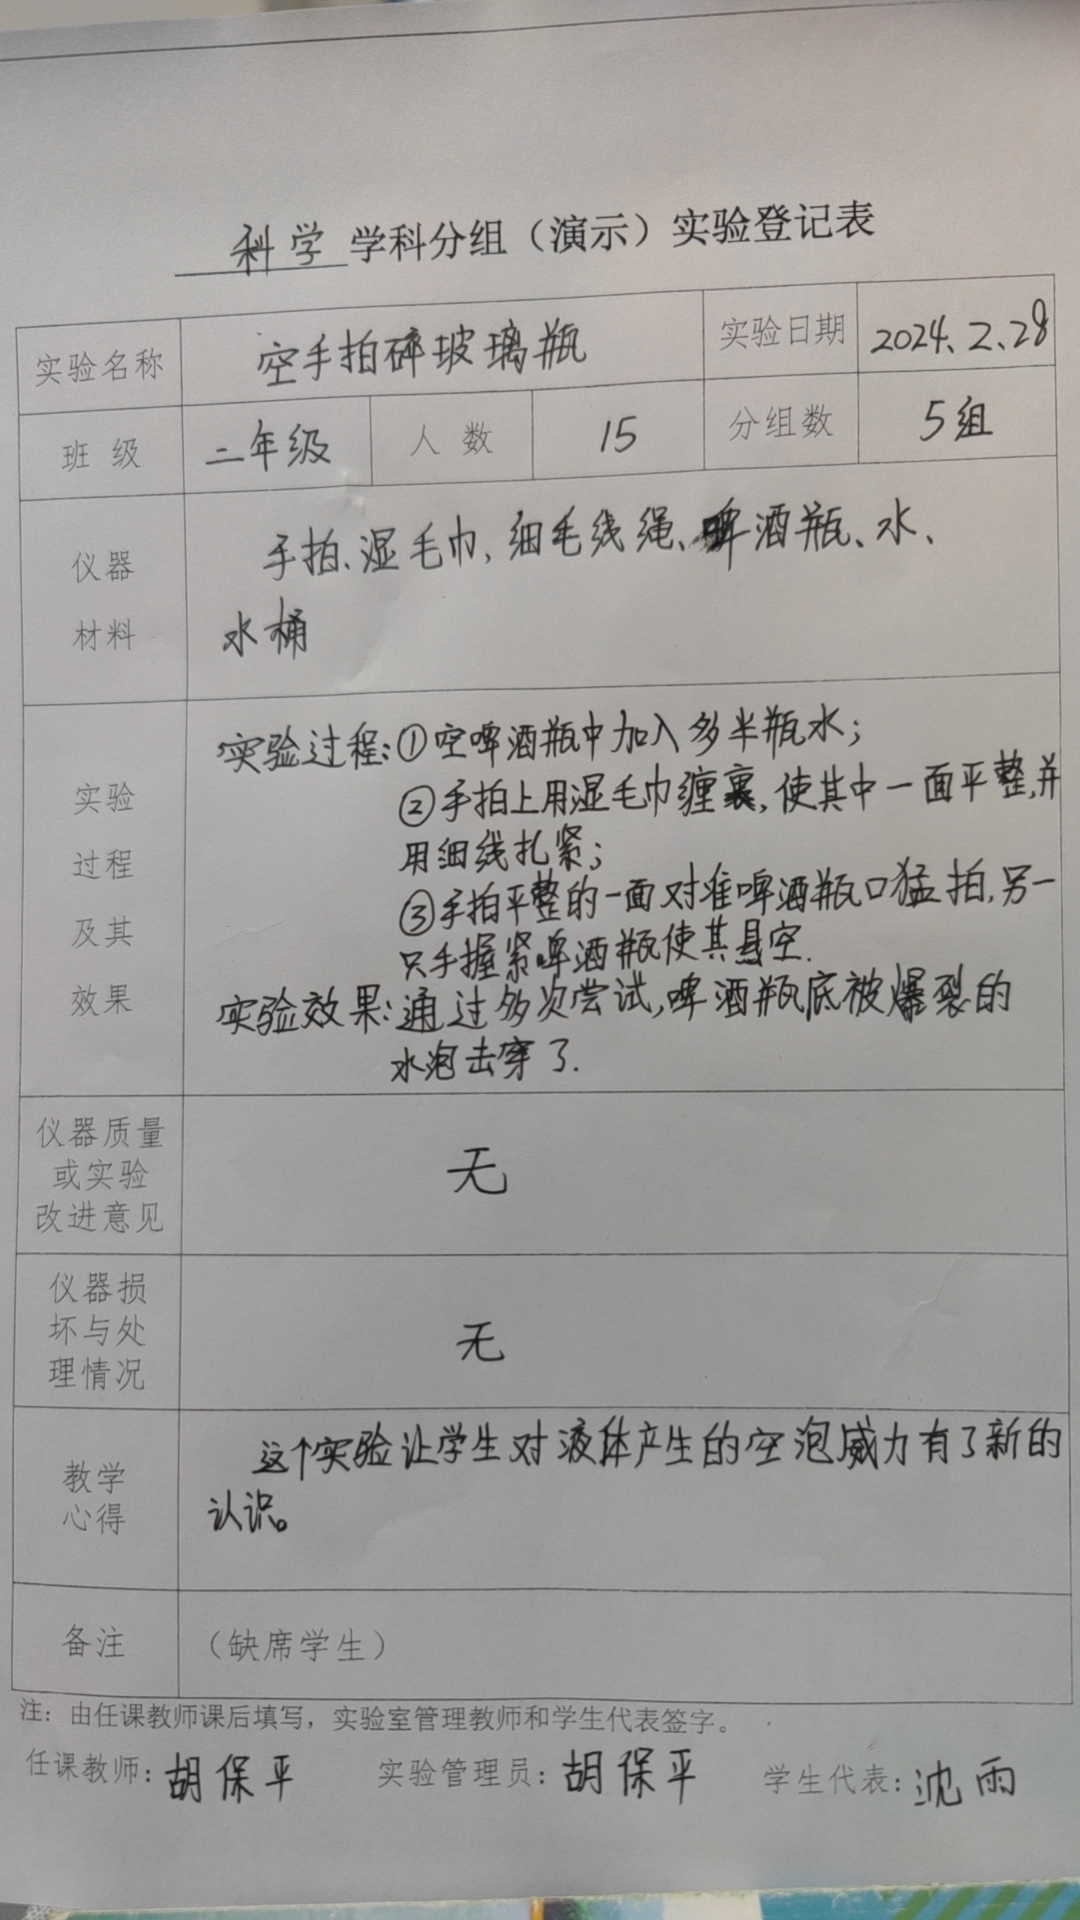 科学 学科分组（演示）实验登记表
实验名称 空手拍碎玻璃瓶 实验日期 2024、2、28
班 级 二年级 人 数 15 分组数 5组
仪器
材料
手拍、湿毛巾，细毛线绳、啤酒瓶、水、
水桶
实验
过程
及其
效果
实验过程：①空啤酒瓶中加入多半瓶水；
②手拍上用湿毛巾缠裹，使其中一面平整，并
用细线扎紧；
③手拍平整的一面对准啤酒瓶口猛拍，另一
只手握紧啤酒瓶使其悬空.
实验效果：通过多次尝试，啤酒瓶底被爆裂的
水泡击穿了.
仪器质量
或实验
改进意见
无
仪器损
坏与处
理情况
无
教学
心得
这个实验让学生对液体产生的空泡威力有了新的
认识。
备注 （缺席学生）
注：由任课教师课后填写，实验室管理教师和学生代表签字。
任课教师：胡保平 实验管理员：胡保平 学生代表：沈雨